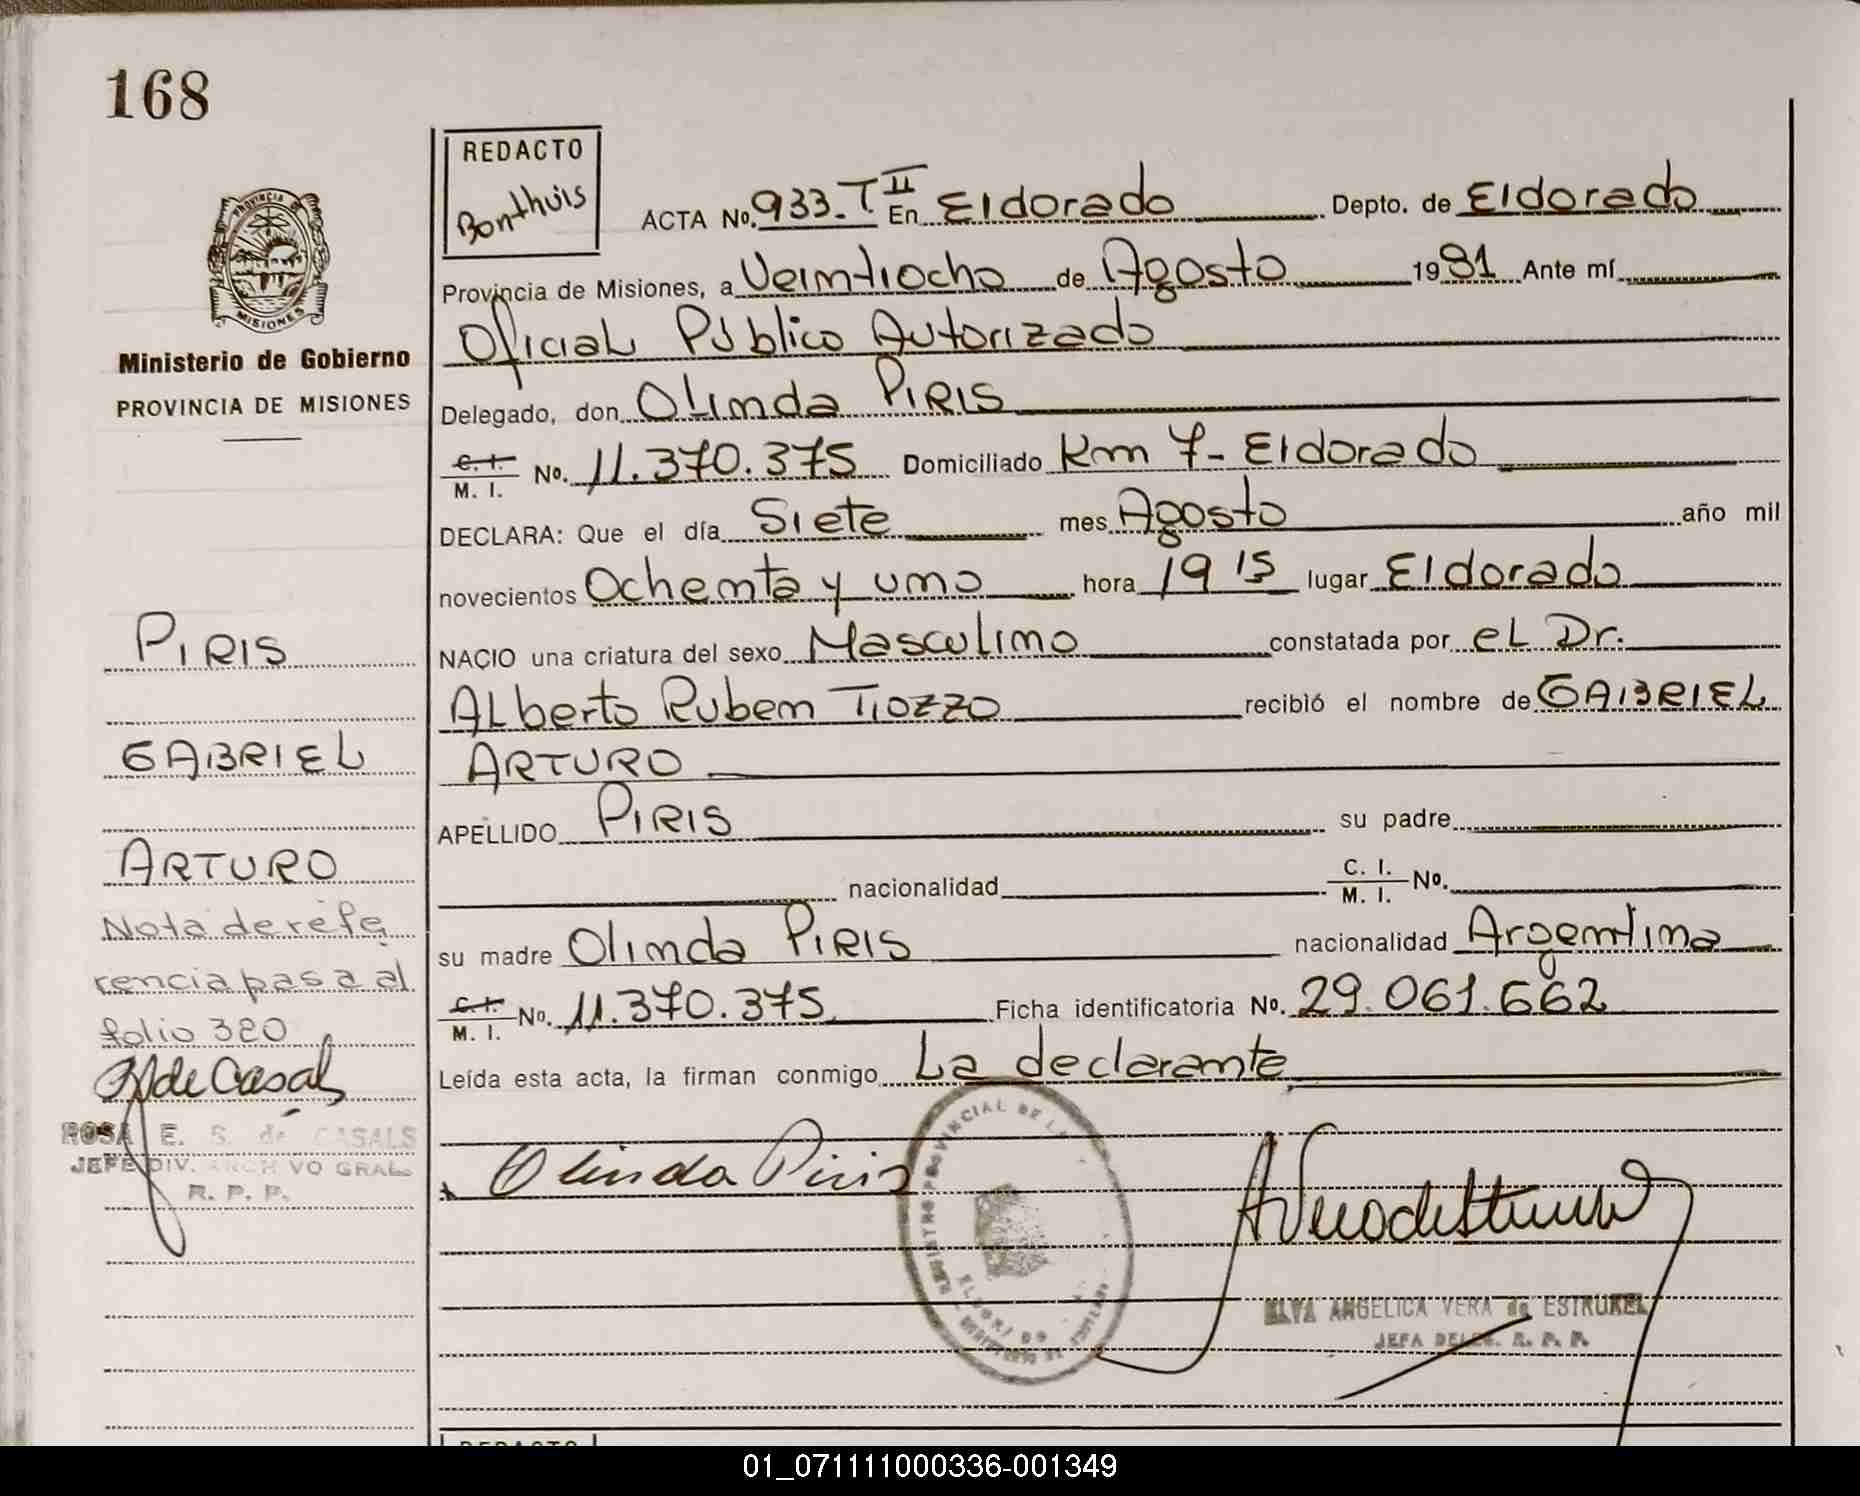 168
REDACTO
Bonthuis
ACTA No. 933-T II En Eldorado Depto. de Eldorado
Provincia de Misiones, a Veintiocho de Agosto 1981 Ante mí
Oficial Público Autorizado
Delegado, don Olinda PIRIS
C. I. M. I. No. 11.370.375 Domiciliado Km 7- Eldorado
DECLARA: Que el día Siete mes Agosto año mil
novecientos Ochenta y uno hora 19 15 lugar Eldorado
NACIO una criatura del sexo Masculino constatada por el Dr.
Alberto Ruben Tiozzo recibió el nombre de GABRIEL
ARTURO
APELLIDO PIRIS su padre
nacionalidad C. I. M. I. No.
su madre Olinda PIRIS nacionalidad Argentina
C. I. M. I. No. 11.370.375 Ficha identificatoria No. 29.061.662
Leída esta acta, la firman conmigo La declarante
Olinda Piris
REGISTRO PROVINCIAL DE LA
ELVA ANGELICA VERA de ESTRUKEL
JEFA DELEG. R. P. P.
PROVINCIA DE
MISIONES
Ministerio de Gobierno
PROVINCIA DE MISIONES
PIRIS
GABRIEL
ARTURO
Nota de refe
rencia pasa al
folio 320
de Casals
ROSA E. S. de CASALS
JEFE DIV. ARCHIVO GRAL.
R. P. P.
REDACTO
01_071111000336-001349